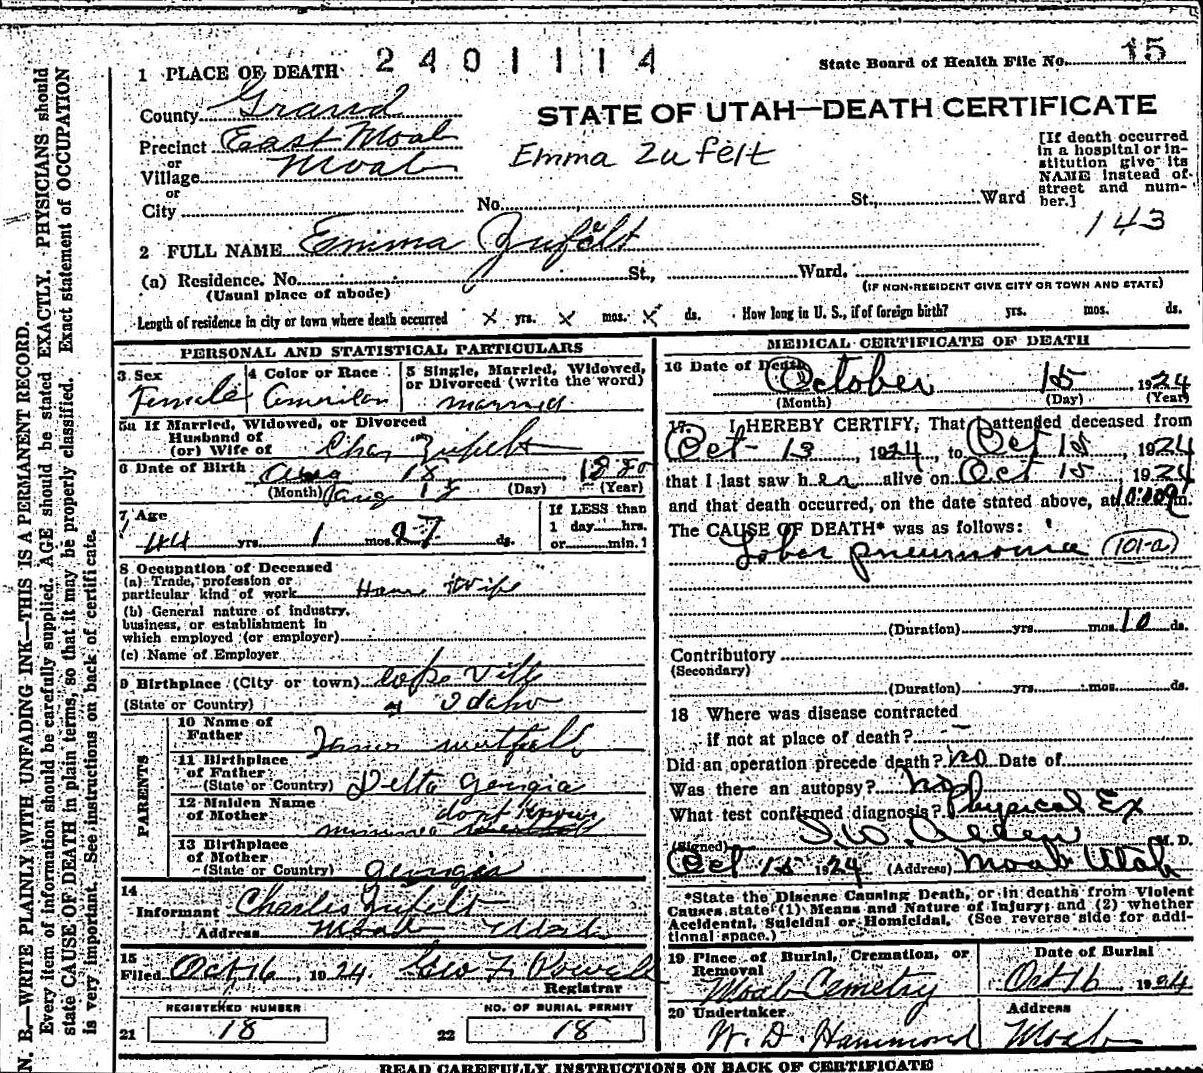 2401114
State Board of Health File No. 15
1 PLACE OF DEATH
County Grand
STATE OF UTAH—DEATH CERTIFICATE
Precinct East Moab
or
Village Moab
Emma Zufelt
[If death occurred
in a hospital or in-
stitution give its
NAME instead of
street and num-
ber.]
or
City
No. St., Ward
143
2 FULL NAME Emma Zufelt
(a) Residence. No. St., Ward.
(Usual place of abode)
(IF NON-RESIDENT GIVE CITY OR TOWN AND STATE)
Length of residence in city or town where death occurred x yrs. x mos. x ds. How long in U. S., if of foreign birth? yrs. mos. ds.
PERSONAL AND STATISTICAL PARTICULARS
3 Sex
Female
4 Color or Race
American
5 Single, Married, Widowed,
or Divorced (write the word)
married
5a If Married, Widowed, or Divorced
Husband of
(or) Wife of Chas Zufelt
6 Date of Birth Aug 18, 1880
(Month) (Day) (Year)
Aug 18
7 Age
44 yrs. 1 mos. 27 ds.
If LESS than
1 day hrs.
or min.
8 Occupation of Deceased
(a) Trade, profession or
particular kind of work House Wife
(b) General nature of industry,
business, or establishment in
which employed (or employer)
(c) Name of Employer
9 Birthplace (City or town) Ville
(State or Country) Idaho
PARENTS
10 Name of
Father
11 Birthplace
of Father
(State or Country) Delta Georgia
12 Maiden Name
of Mother dont know
13 Birthplace
of Mother
(State or Country) Georgia
14
Informant Charles Zufelt
Address Moab Utah
15
Filed Oct 16, 1924. Geo Powell
Registrar
REGISTERED NUMBER
21 18
NO. OF BURIAL PERMIT
22 18
MEDICAL CERTIFICATE OF DEATH
16 Date of Death
October 15, 1924
(Month) (Day) (Year)
17 I HEREBY CERTIFY, That I attended deceased from
Oct 13, 1924, to Oct 15, 1924
that I last saw her alive on Oct 15 1924
and that death occurred, on the date stated above, at m.
The CAUSE OF DEATH* was as follows:
Lober pneumonia (101-a)
(Duration) yrs. mos. 10 ds.
Contributory
(Secondary)
(Duration) yrs. mos. ds.
18 Where was disease contracted
if not at place of death? —
Did an operation precede death? no Date of
Was there an autopsy? no
What test confirmed diagnosis? Physical Ex
(Signed) M. D.
Oct 15 1924 (Address) Moab Utah
*State the Disease Causing Death, or in deaths from Violent
Causes, state (1) Means and Nature of Injury; and (2) whether
Accidental, Suicidal or Homicidal. (See reverse side for addi-
tional space.)
19 Place of Burial, Cremation, or
Removal
Moab Cemetry
Date of Burial
Oct 16, 1924
20 Undertaker
W. D. Hammond
Address
Moab
READ CAREFULLY INSTRUCTIONS ON BACK OF CERTIFICATE
N. B.—WRITE PLAINLY WITH UNFADING INK—THIS IS A PERMANENT RECORD.
Every item of information should be carefully supplied. AGE should be stated EXACTLY. PHYSICIANS should
state CAUSE OF DEATH in plain terms, so that it may be properly classified. Exact statement of OCCUPATION
is very important. See instructions on back of certificate.